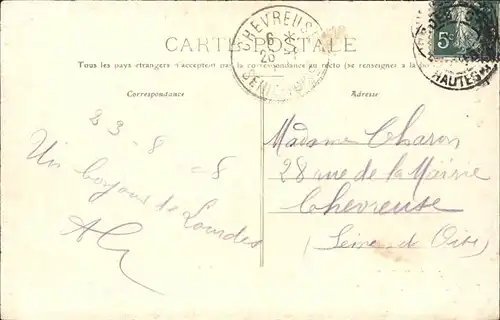 CHEVREUSE
6 *
26 -8
CARTE POSTALE
5c
HAUTES
Tous les pays étrangers n'acceptent pas la correspondance au recto (se renseignez à la
Correspondance
Adresse
23-8-8
Un bonjour de Lourdes
Madame Charon
28 rue de la Mairie
Chevreuse
(Seine-et-Oise)